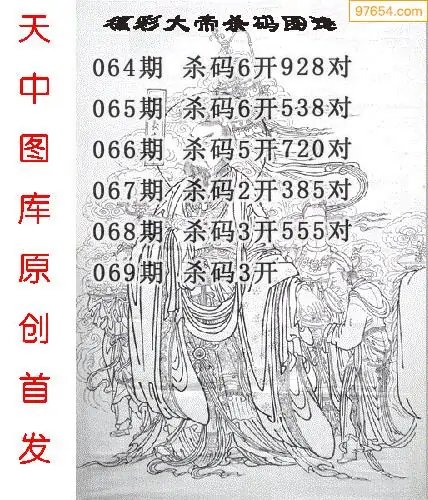 97654.com
福彩大帝杀码图迷
064期 杀码6开928对
065期 杀码6开538对
066期 杀码5开720对
067期 杀码2开385对
068期 杀码3开555对
069期 杀码3开
天中图库原创首发